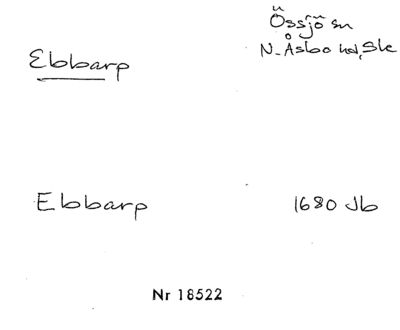 Össjö sn
N. Åsbo hd, Sk
Ebbarp
Ebbarp 1680 Jb
Nr 18522